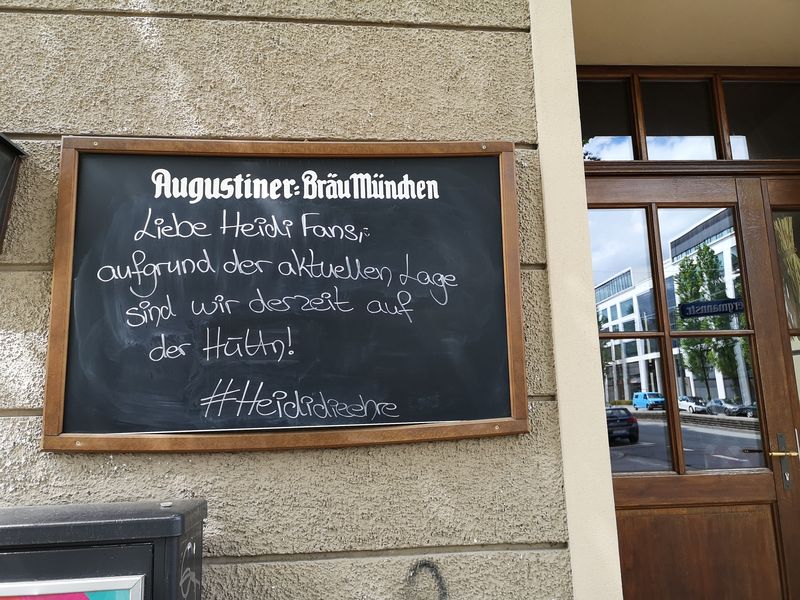 Augustiner=Bräu München
Liebe Heidi Fans,
aufgrund der aktuellen Lage
sind wir derzeit auf
der Hüttn!
#Heidideehre
ergmannstr.